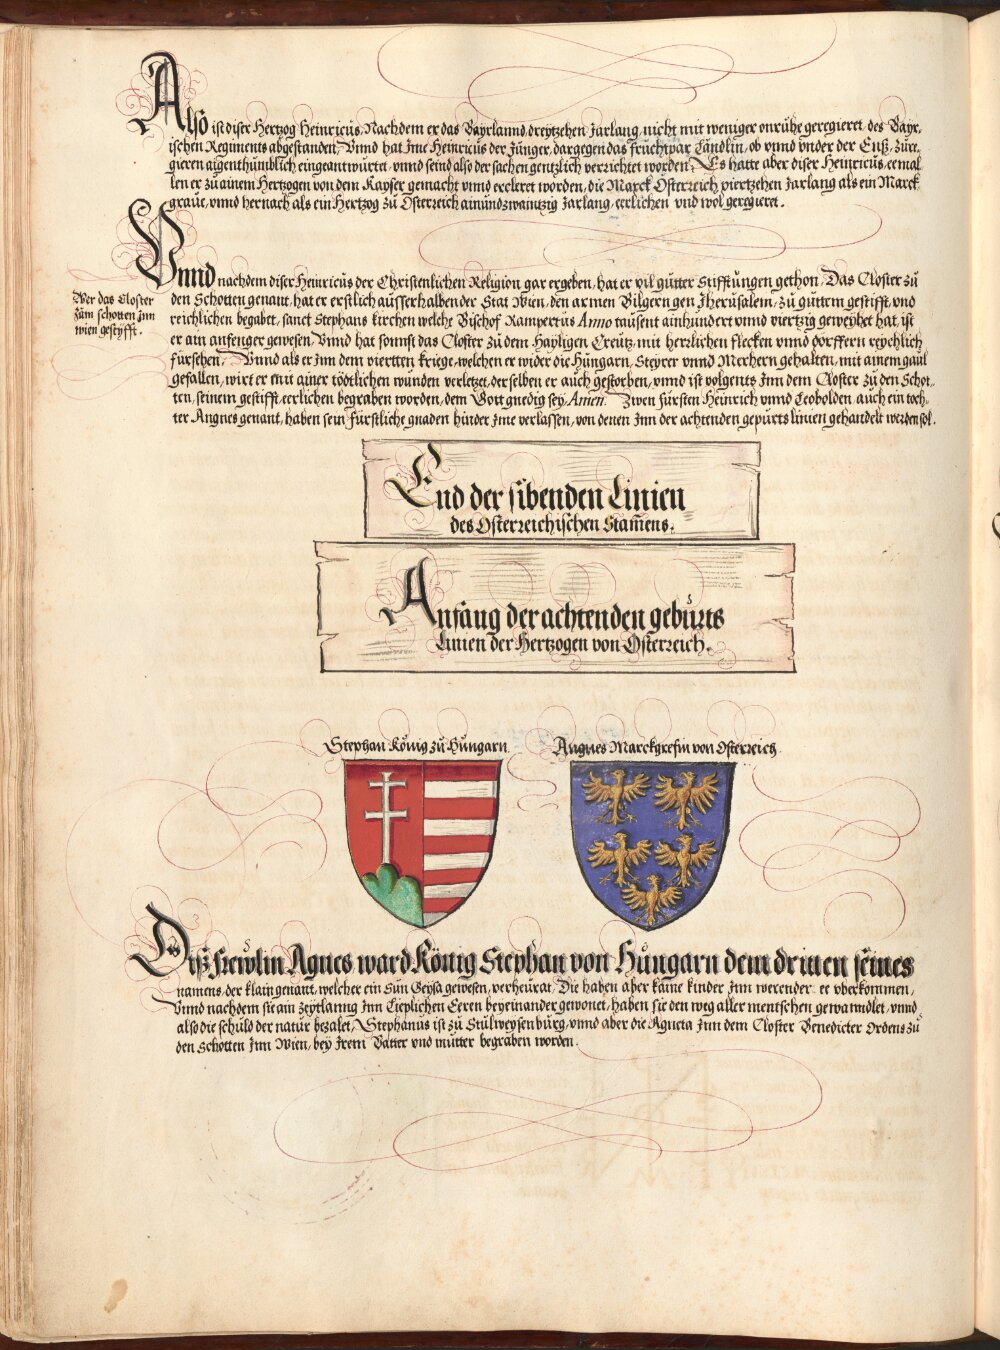 Also ist diser Hertzog Heinricus, Nachdem er das Bayrlannd, dreytzehen Jarlang, nicht mit weniger onrůhe geregieret, des Bayr,
ischen Regiments abgestanden, Vnnd hat Jme Heinricus der Jünger, dargegen das fruchtpar Länndlin, ob vnnd vnder der Enß, zůre,
gieren aigenthümblich eingeantwürtet, vnnd seind also der sachen gentzlich verzichtet worden, Es hatte aber diser Heinricus, ee mal
len er zů ainem Hertzogen von dem Kayser gemacht vnnd creieret worden, die Marck Osterreich viertzehen Jarlang als ein Marck
graue, vnnd hernach als ein Hertzog zů Osterreich ainundzwaintzig Jarlang, eerlichen vnd wol geregieret.
Vnnd nachdem diser Heinricus der Christenlichen Religion gar ergeben, hat er vil gůtter Stifftungen gethon, Das Closter zů
den Schotten genant, hat er erstlich ausserhalben der Stat Wien, den armen Bilgern gen Jherusalem, zů gůttem gestifft, vnd
reichlichen begabet, sanct Stephans kirchen welche Bischof Rampertus Anno tausent ainhundert vnnd viertzig geweyhet hat, ist
er ain anfenger gewesen, Vnnd hat sonnst das Closter zů dem Hayligen Creütz, mit herzlichen flecken vnnd dörffern reychlich
fürsehen, Vnnd als er Jnn dem viertten kriege, welchen er wider die Hungarn, Steyrer vnnd Merhern gehalten, mit ainem gaul
gefallen, wirt er mit ainer tödtlichen wunden verletzet, derselben er auch gestorben, vnnd ist volgents Jnn dem Closter zů den Schot,
ten, seinem gestifft, eerlichen begraben worden, dem Gott gnedig sey Amen. Zwen fürsten Heinrich vnnd Leobolden, auch ein toch,
ter Angnes genant, haben sein fürstliche gnaden hinder Jme verlassen, von denen Jnn der achtenden gepurts linien gehandelt werden sol.
Wer das Closter
zům schotten Jnn
wien gestyfft.
End der sibenden Linien
des Osterreichischen Stam̄ens.
Anfang der achtenden gebůrts
Linien der Hertzogen von Osterreich.
Stephan König zů Hůngarn
Angnes Marckgrefin von Osterreich
Diß Frewlin Agnes ward König Stephan von Hůngarn dem dritten seines
namens, der klain genant, welcher ein Sun Geysa gewesen, verheürat, Die haben aber kaine kinder Jnn werender ee vberkommen,
Vnnd nachdem sie ain zeytlanng Jnn Lieplichen Eeren beyeinander gewonet, haben sie den weg aller mentschen gewanndlet, vnnd
also die schuld der natur bezalet, Stephanus ist zů Stůlweysenburg, vnnd aber die Agneta Jnn dem Closter Benedicter Ordens zů
den Schotten Jnn Wien, bey Jrem Vatter vnd můtter begraben worden.